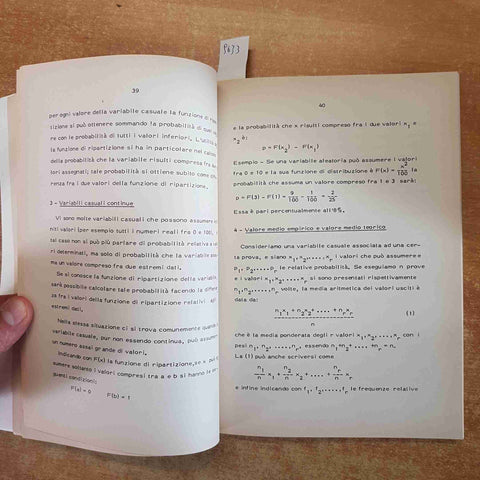 P673
39
per ogni valore della variabile casuale la funzione di ripar
tizione si può ottenere sommando la probabilità di quel valo
re con le probabilità di tutti i valori inferiori. L'utilità del
la funzione di ripartizione si ha in particolare nel calcolo
della probabilità che la variabile risulti compresa fra due va
lori assegnati; tale probabilità si ottiene subito come diffe
renza fra i due valori della funzione di ripartizione.
3 - Variabili casuali continue
Vi sono molte variabili casuali che possono assumere infi
niti valori (per esempio tutti i numeri reali fra 0 e 100). In
tal caso non si può più parlare di probabilità relative a valo
ri determinati, ma solo di probabilità che la variabile assu
ma un valore compreso fra due estremi dati.
Se si conosce la funzione di ripartizione della variabile,
sarà possibile calcolare tale probabilità facendo la differen
za fra i valori della funzione di ripartizione relativi agli
estremi dati.
Nella stessa situazione ci si trova comunemente quando la
variabile casuale, pur non essendo continua, può assumere
un numero assai grande di valori.
Indicando con F(x) la funzione di ripartizione, se x può
assumere soltanto i valori compresi tra a e b si hanno le
guenti condizioni:
F(a) = 0 F(b) = 1
40
e la probabilità che x risulti compreso fra i due valori x1 e
x2 è:
p = F(x2) - F(x1)
Esempio - Se una variabile aleatoria può assumere i valori
fra 0 e 10 e la sua funzione di distribuzione è F(x) = x²/100 la
probabilità che assuma un valore compreso fra 1 e 3 sarà:
p = F(3) - F(1) = 9/100 - 1/100 = 2/25
Essa è pari percentualmente all'8%.
4 - Valore medio empirico e valore medio teorico
Consideriamo una variabile casuale associata ad una cer-
ta prova, e siano x1, x2, ...., xr i valori che può assumere e
p1, p2, ...., pr le relative probabilità. Se eseguiamo n prove
e i valori x1, x2, ...., xr si sono presentati rispettivamente
n1, n2, ...., nr volte, la media aritmetica dei valori usciti è
data da:
n1x1 + n2x2 + .... + nrxr / n (1)
che è la media ponderata degli r valori x1, x2, ...., xr con i
pesi n1, n2, ...., nr, essendo n1+n2+ .... +nr = n.
La (1) può anche scriversi come
n1/n x1 + n2/n x2 + .... + nr/n xr
e infine indicando con f1, f2, ...., fr le frequenze relative